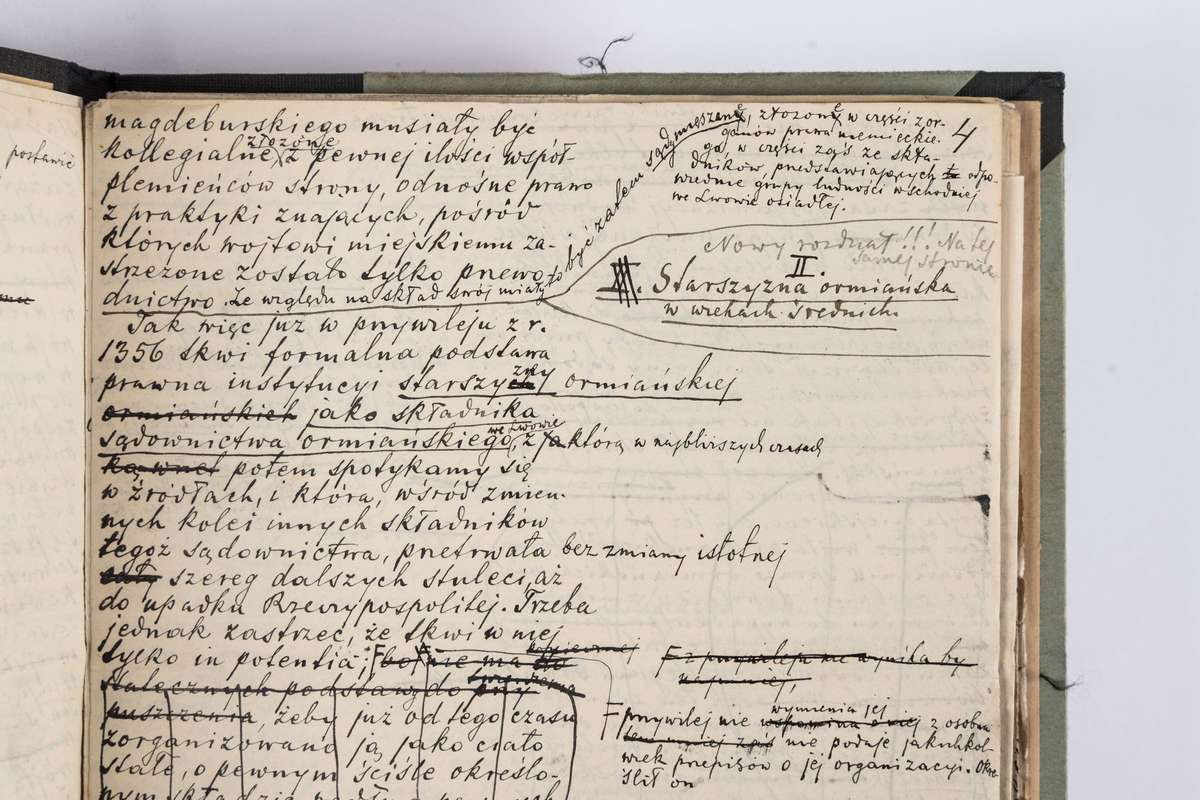 postawić
4
magdeburskiego musiały być
kollegialne, złożone z pewnej ilości współ-
plemieńców strony, odnośne prawo
z praktyki znających, pośród
których wojtowi miejskiemu za-
strzeżone zostało tylko przewo-
dnictwo. Ze względu na skład swój miały
to być zatem sądy mieszane, złożone, w części z or-
ganów prawa niemieckie-
go, w części zaś ze skła-
dników, przedstawiających te odpo-
wiednie grupy ludności wschodniej
we Lwowie osiadłej.
Nowy rozdział!!! Na tej
samej stronie
II.
III. Starszyzna ormiańska
w wiekach średnich.
Tak więc już w przywileju z r.
1356 tkwi formalna podstawa
prawna instytucyi starszyzny ormiańskiej
ormiańskich jako składnika
sądownictwa ormiańskiego we Lwowie, z którą w najbliższych czasach
ką wnet potem spotykamy się
w źródłach, i która, wśród zmien-
nych kolei innych składników
tegoż sądownictwa, przetrwała bez zmiany istotnej
cały szereg dalszych stuleci, aż
do upadku Rzeczypospolitej. Trzeba
jednak zastrzec, że tkwi w niej
tylko in potentia;
F z przywileju nie wynika by
najmniej,
statecznych podstaw do przy
puszczenia, żeby już od tego czasu
zorganizowano ją jako ciało
stałe, o pewnym ściśle określo-
nym składzie
F przywilej nie wspomina o niej wymienia jej z osobna
nie podaje jakichkol-
wiek przepisów o jej organizacyi. Okre-
ślił on